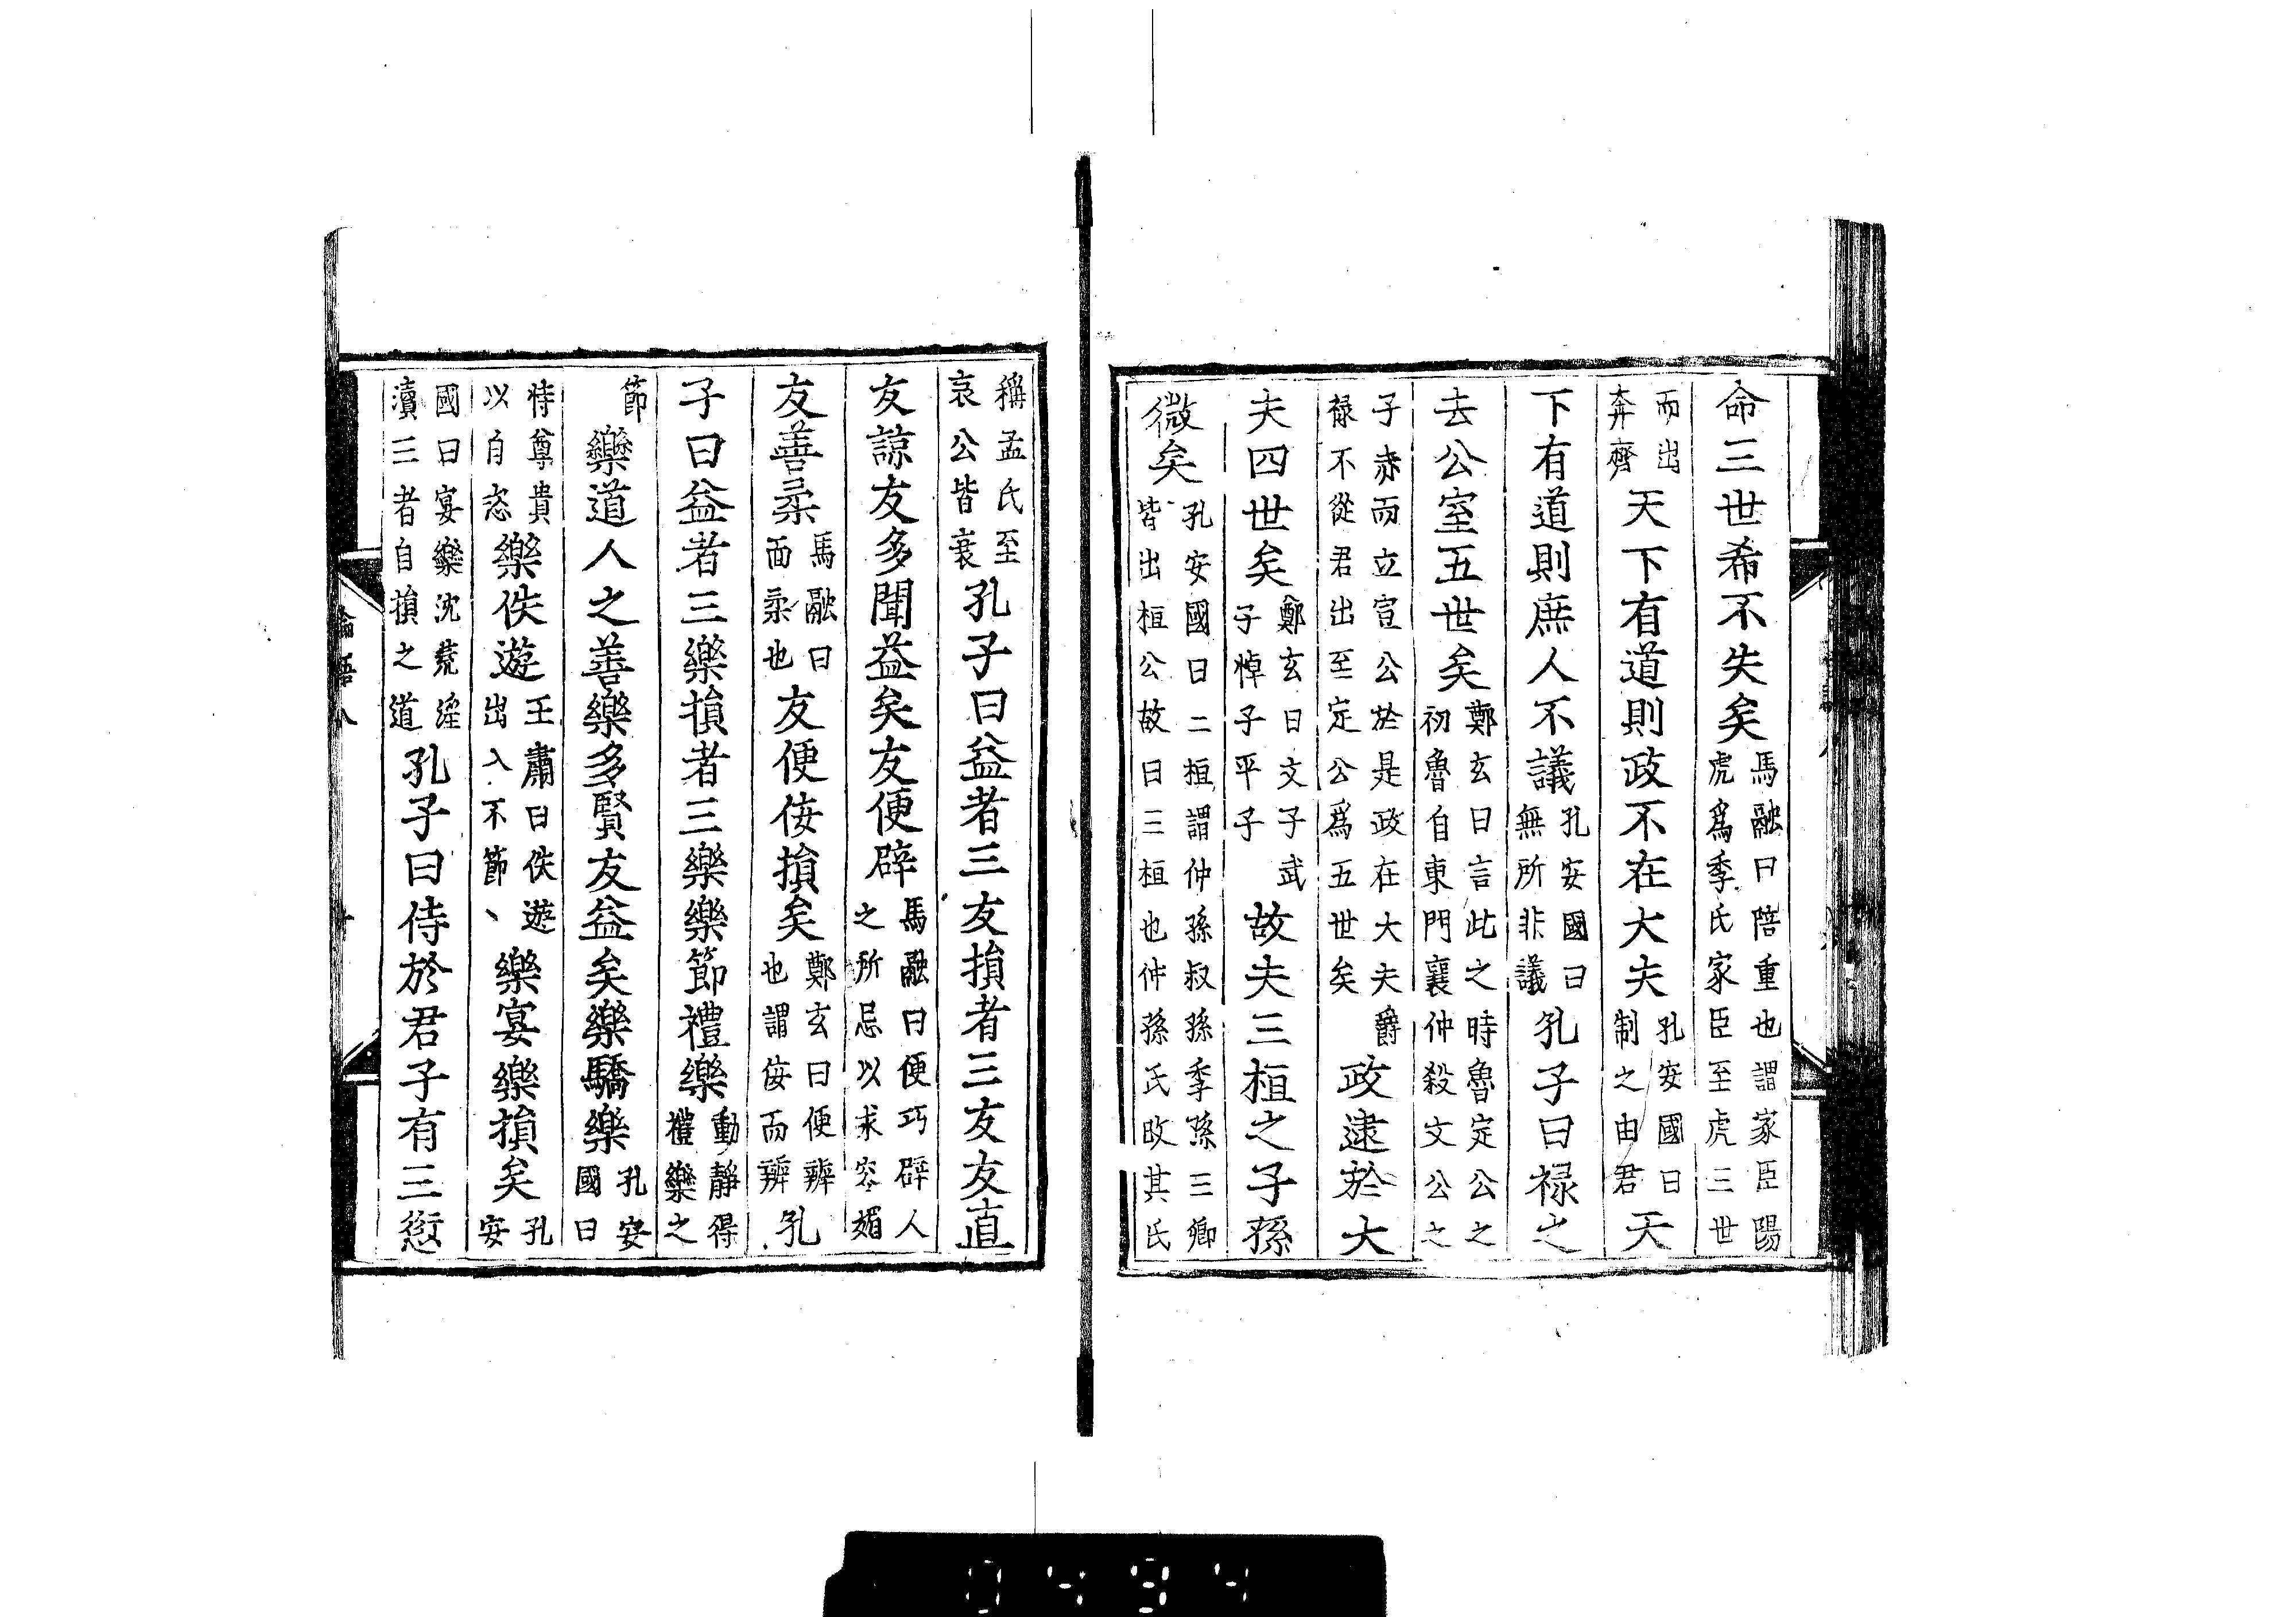 命三世希不失矣馬融曰陪重也謂家臣陽虎爲季氏家臣至虎三世
而出奔齊天下有道則政不在大夫孔安國曰制之由君天
下有道則庶人不議孔安國曰無所非議孔子曰祿之
去公室五世矣鄭玄曰言此之時魯定公之初魯自東門襄仲殺文公之
子赤而立宣公於是政在大夫爵祿不從君出至定公爲五世矣政逮於大
夫四世矣鄭玄曰文子武子悼子平子故夫三桓之子孫
微矣孔安國曰三桓謂仲孫叔孫季孫三卿皆出桓公故曰三桓也仲孫氏改其氏
稱孟氏至哀公皆衰孔子曰益者三友損者三友友直
友諒友多聞益矣友便辟馬融曰便巧辟人之所忌以求容媚
友善柔馬融曰面柔也友便佞損矣鄭玄曰便辨也謂佞而辨孔
子曰益者三樂損者三樂樂節禮樂動靜得禮樂之
節樂道人之善樂多賢友益矣樂驕樂孔安國曰
恃尊貴以自恣樂佚遊王肅曰佚遊出入不節丶樂宴樂損矣孔安
國曰宴樂沈荒淫瀆三者自損之道孔子曰侍於君子有三愆
論語八